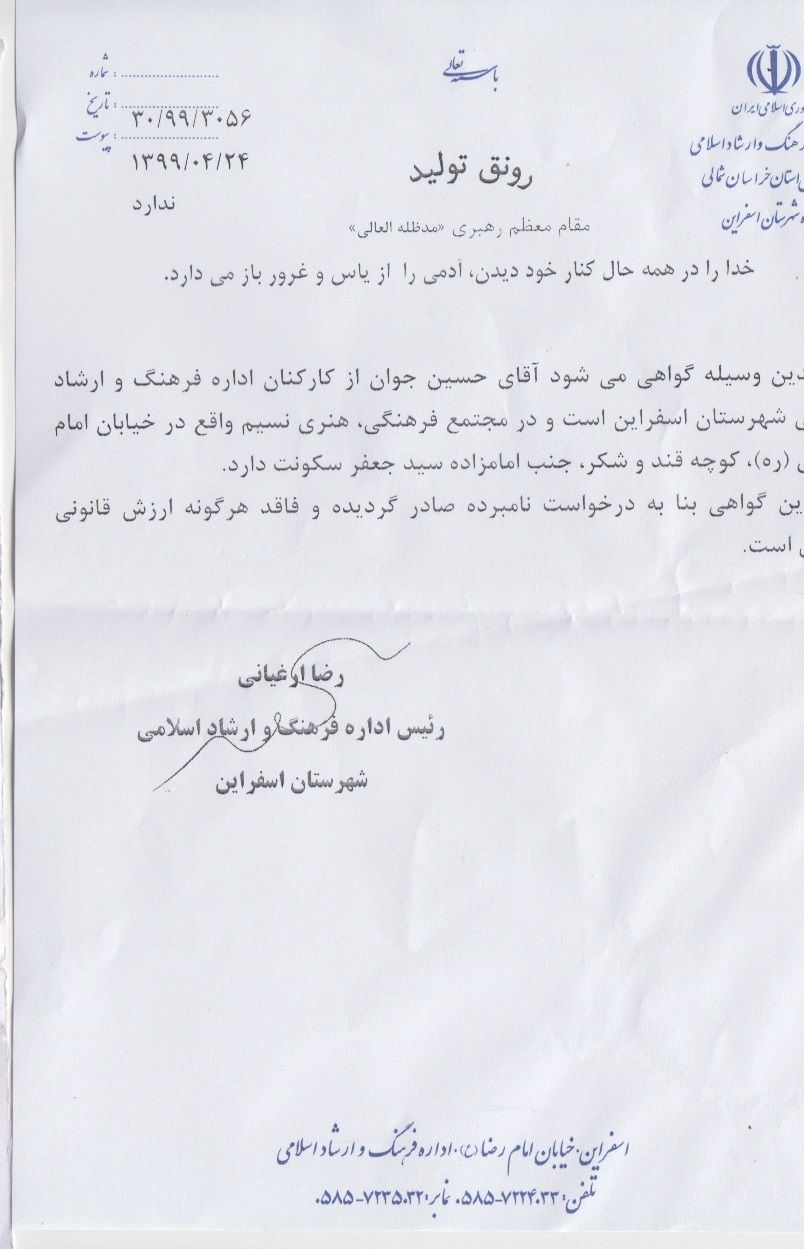 باسمه تعالی
شماره :
۳۰/۹۹/۳۰۵۶
تاریخ :
۱۳۹۹/۰۴/۲۴
پیوست :
ندارد
وری اسلامی ایران
هنگ و ارشاد اسلامی
استان خراسان شمالی
شهرستان اسفراین
رونق تولید
مقام معظم رهبری «مدظله العالی»
خدا را در همه حال کنار خود دیدن، آدمی را از یاس و غرور باز می دارد.
دین وسیله گواهی می شود آقای حسین جوان از کارکنان اداره فرهنگ و ارشاد
شهرستان اسفراین است و در مجتمع فرهنگی، هنری نسیم واقع در خیابان امام
(ره)، کوچه قند و شکر، جنب امامزاده سید جعفر سکونت دارد.
ین گواهی بنا به درخواست نامبرده صادر گردیده و فاقد هرگونه ارزش قانونی
است.
رضا ارغیانی
رئیس اداره فرهنگ و ارشاد اسلامی
شهرستان اسفراین
اسفراین-خیابان امام رضا (ع)-اداره فرهنگ و ارشاد اسلامی
تلفن: ۰۵۸۵-۷۲۲۴۰۳۳ نمابر: ۰۵۸۵-۷۲۳۵۰۳۲